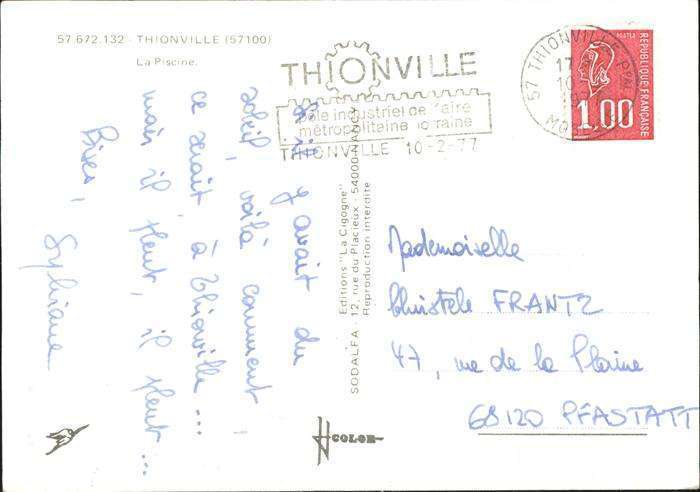 57 672.132 - THIONVILLE (57100)
La Piscine.
THIONVILLE
pôle industriel de l'aire
métropolitaine lorraine
THIONVILLE 10-2-77
57 THIONVILLE
17
10
MOSELLE
POSTES
REPUBLIQUE FRANÇAISE
1,00
S'il y avait du
soleil, voilà comment
ce serait, à Thionville...
mais il pleut, il pleut...
Bises,
Sylviane
Editions "La Cigogne"
SODALFA - 12, rue du Placieux - 54000-NANCY
Reproduction interdite
Mademoiselle
Christele FRANTZ
47, rue de la Plaine
68120 PFASTATT
COLOR